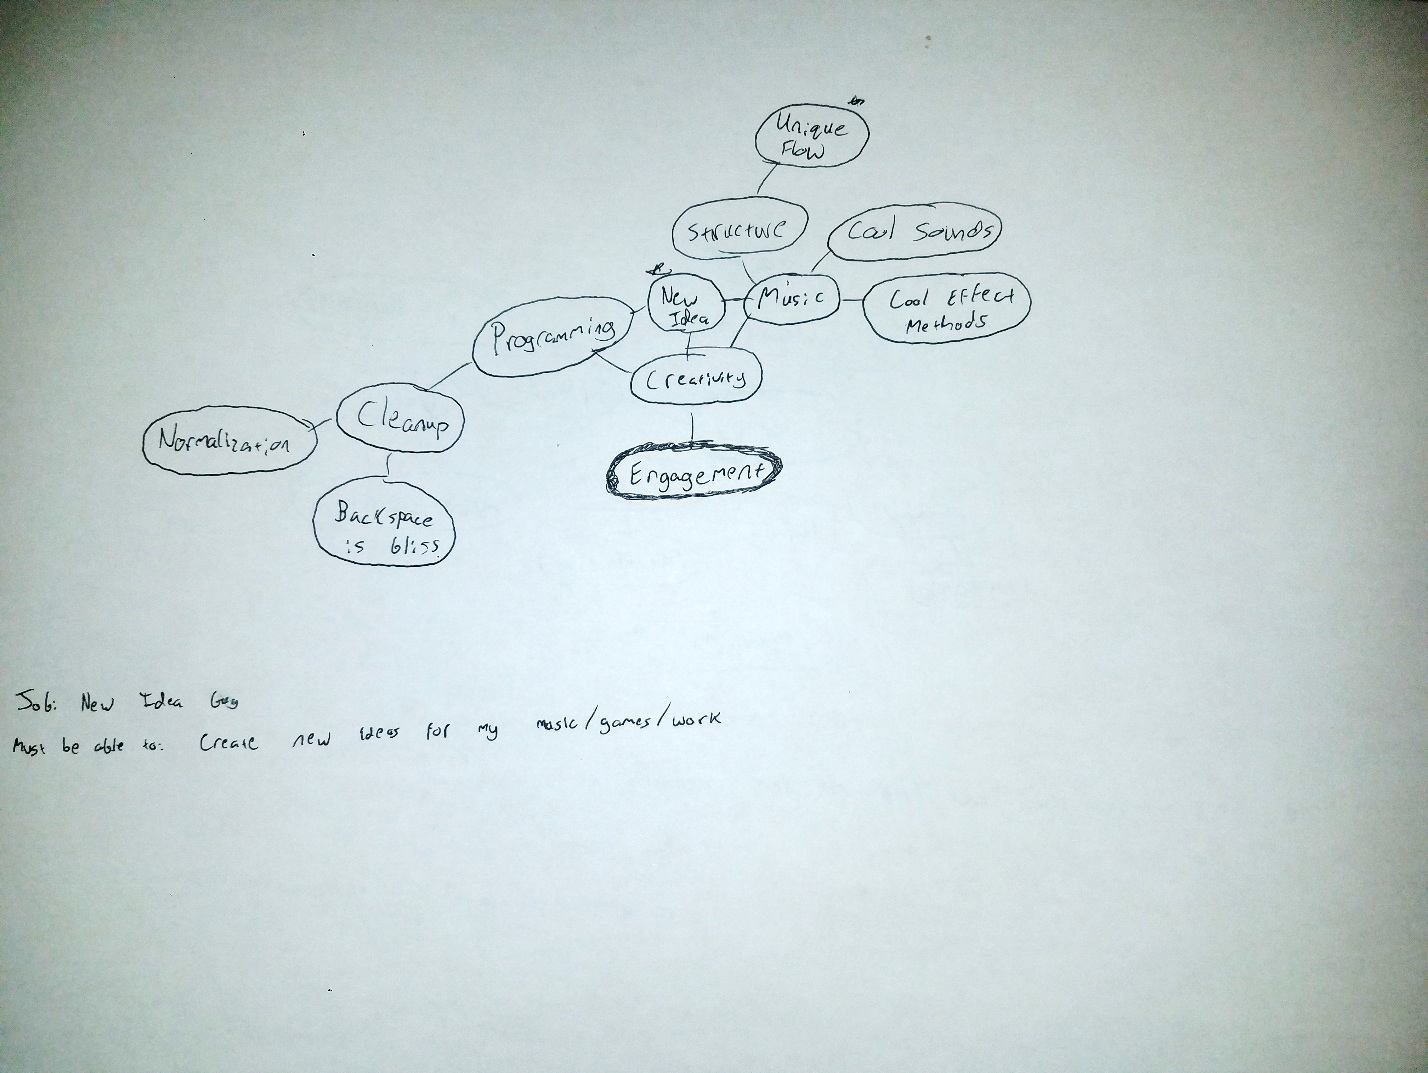 Unique
Flow
Structure
Cool Sounds
New
Idea
Music
Cool Effect
Methods
Programming
Creativity
Cleanup
Normalization
Engagement
Backspace
is bliss
Job: New Idea Guy
Must be able to: Create new ideas for my music/games/work